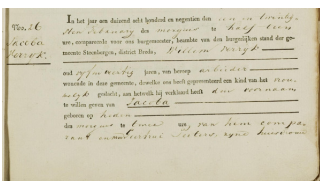 Nro. 26
Jacoba
Verryk.
In het jaar een duizend acht honderd en negentien den een en twintig-
sten February des morgens te half elf
ure, compareerde voor ons burgemeester, beambte van den burgerlijken stand der ge-
meente Steenbergen, district Breda, Willem Verryk
oud vyfentwintig jaren, van beroep arbeider
wonende in deze gemeente, dewelke ons heeft gepresenteerd een kind van het vrou-
welyk geslacht, aan hetwelk hij verklaard heeft den voornaam
te willen geven van Jacoba
geboren op heden
des morgens te twee ure, van hem compa-
rant en zyne huisvrouw